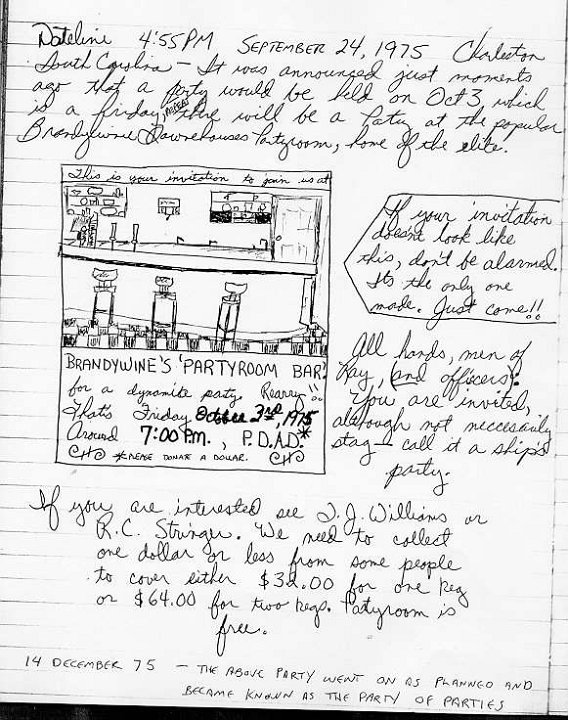 Dateline 4:55 PM SEPTEMBER 24, 1975 Charleston
South Carolina — It was announced just moments
ago that a party would be held on Oct 3, which
is a friday, there will be a Party at the popular
Brandywine Townehouses Partyroom, home of the elite.
This is your invitation to join us at
BRANDYWINE'S 'PARTYROOM BAR'.
for a dynamite party. Rearry!!
That's Friday October 3rd, 1975
Around 7:00 P.M., P.D.A.D.*
*PLEASE DONATE A DOLLAR.
If your invitation
doesn't look like
this, don't be alarmed.
Its the only one
made. Just come!!
All hands, men of
Ray, (and officers):
You are invited,
although not neccesarily
stag - call it a ship's
party.
If you are interested see T.J. Williams or
R.C. Stringer. We need to collect
one dollar or less from some people
to cover either $32.00 for one keg
or $64.00 for two kegs. Partyroom is
free.
14 DECEMBER 75 — THE ABOVE PARTY WENT ON AS PLANNED AND
BECAME KNOWN AS THE PARTY OF PARTIES